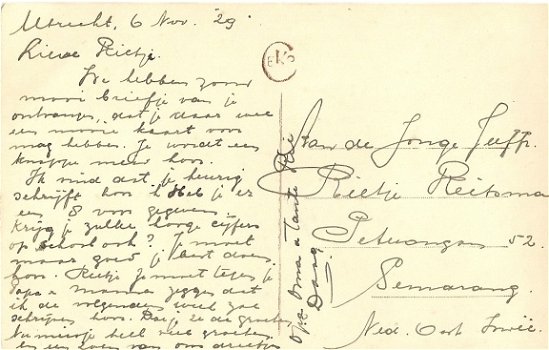 Utrecht, 6 Nov. '29
Lieve Rietje.
We hebben zoo'n
mooi briefje van je
ontvangen, dat je daar wel
een mooie kaart voor
mag hebben. Je wordt een
knappe meid hoor.
Ik vind dat je keurig
schrijft hoor ik heb je er
een 8 voor gegeven.
Krijg je zulke hooge cijfers
op school ook? Je moet
maar goed je best doen
hoor. Rietje je moet tegen je
papa en mama zeggen dat
ik de volgende week zal
schrijven hoor. Dag je de groeten
heel veel groeten
en een zoen van ons drietjes
Opa Oma en Tante
Daag
Van de Jonge Juffr.
Rietje Reitsma
Petrongan 52.
Semarang.
Ned. Oost Indië.